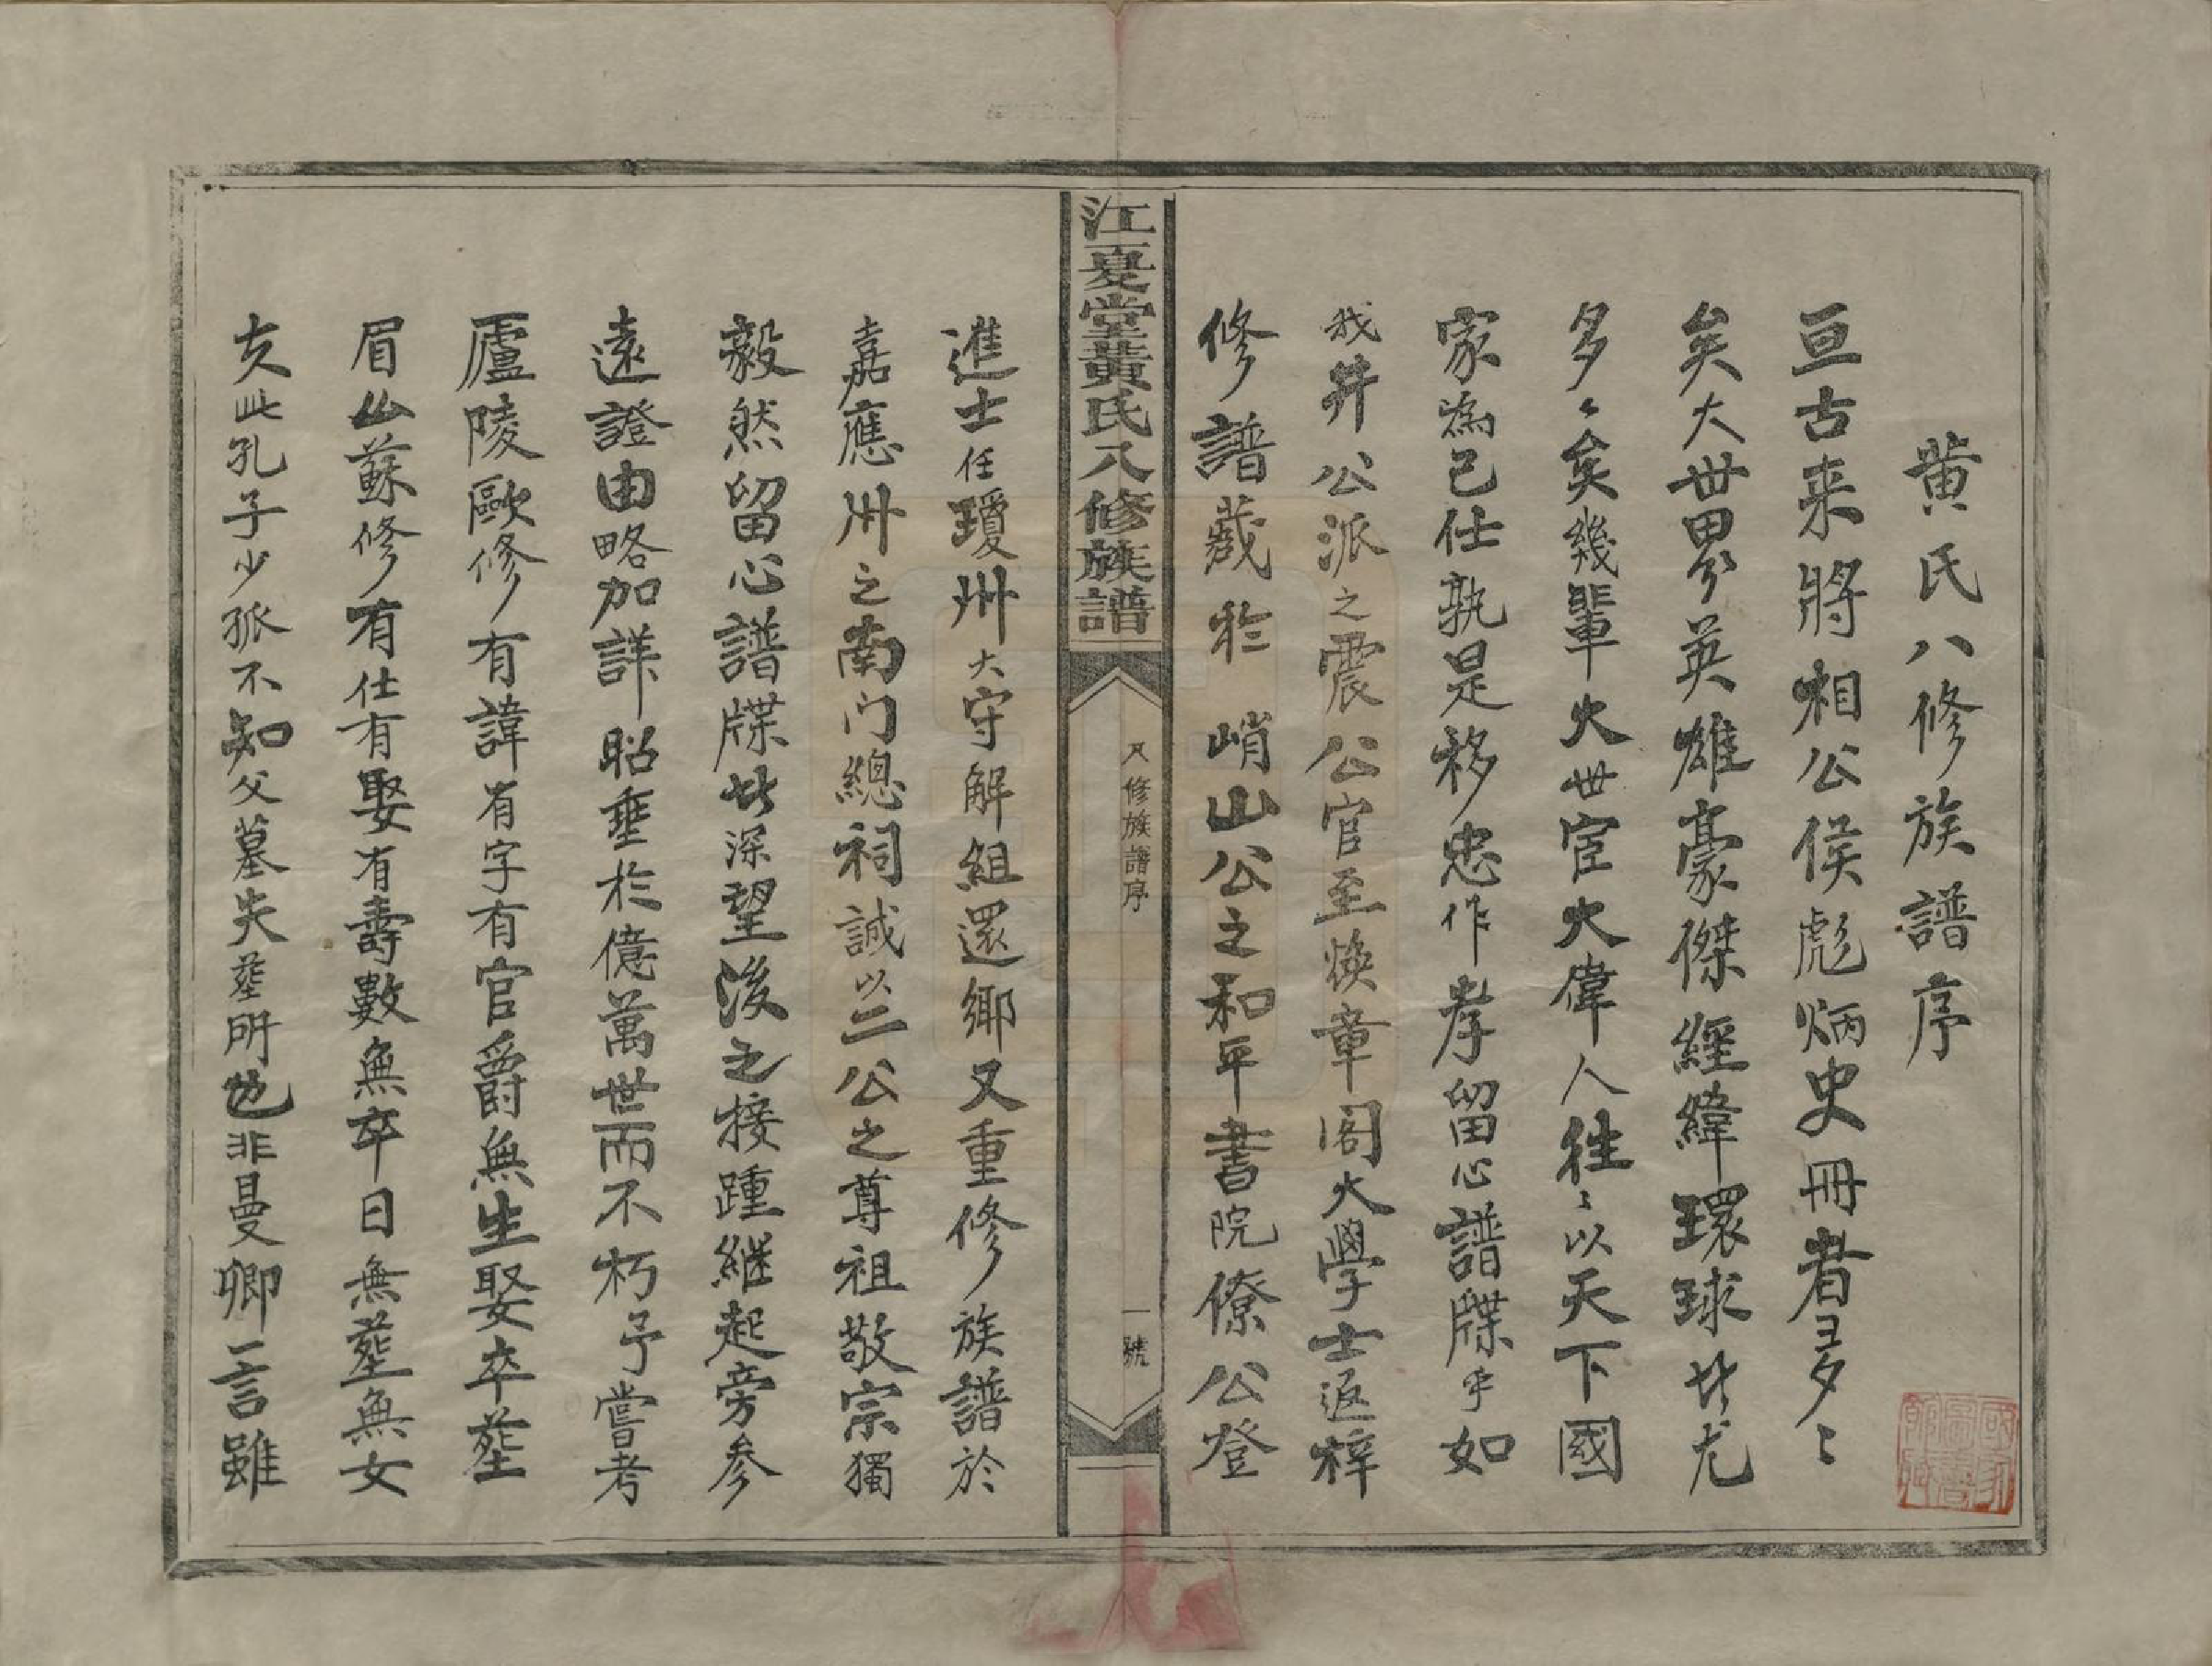 黃氏八修族譜序
亘古来將相公侯彪炳史冊者多〻
矣大世界分英雄豪傑經緯環球此尤
多〻矣幾輩大世宦大偉人往〻以天下國
家為己仕孰是移忠作孝留心譜牒乎如
我井公派之震公官至煥章閣大學士返梓
修譜藏於峭山公之和平書院僚公登
江夏堂黃氏八修族譜
八修族譜序
一號
進士任瓊州大守解組還鄉又重修族譜於
嘉應州之南门總祠誠以二公之尊祖敬宗獨
毅然留心譜牒此深望後之接踵継起旁参
遠證由略加詳昭垂於億萬世而不朽予嘗考
廬陵歐修有諱有字有官爵無生娶卒塟
眉山蘇修有仕有娶有壽數無卒日無塟無女
友此孔子少孤不知父墓失塟所也非曼卿一言雖